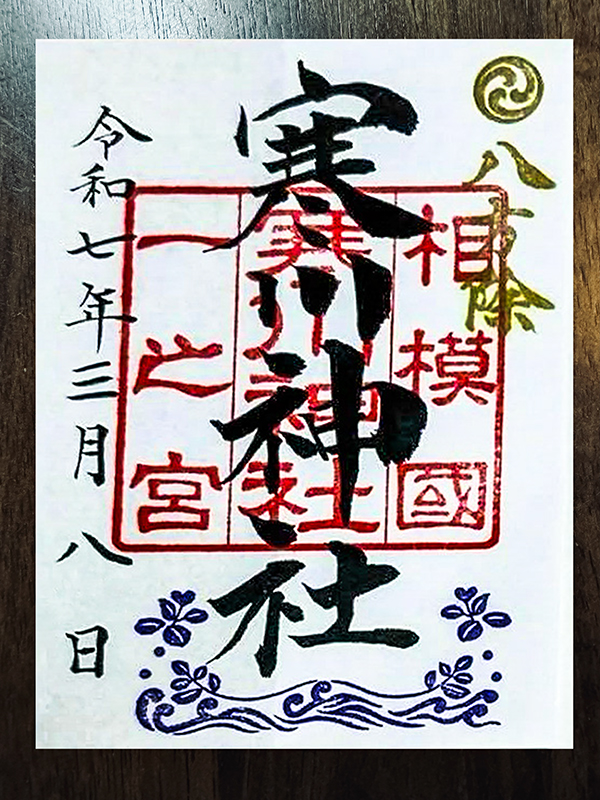 八方除
相模國
寒川神社
一之宮
寒川神社
令和七年三月八日